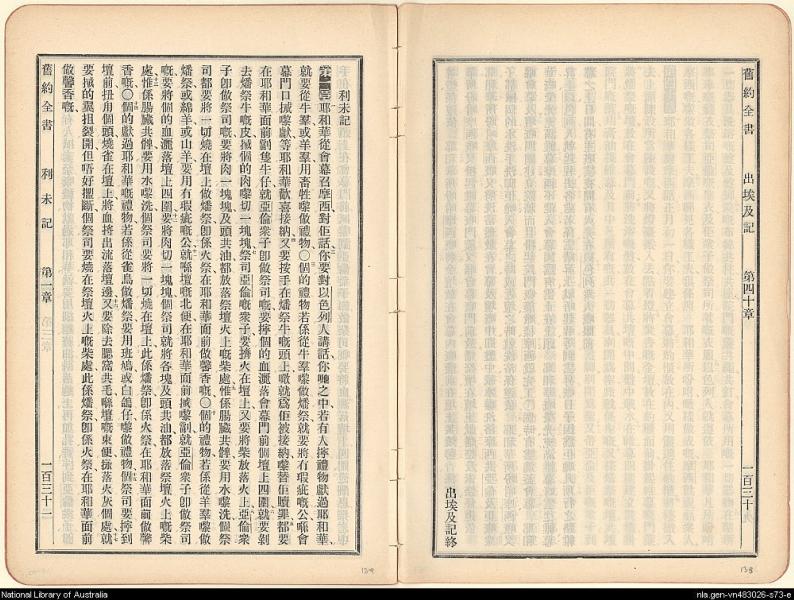 舊約全書 出埃及記 第四十章 一百三十
出埃及記終
利未記
第一章 耶和華從會幕召摩西對佢話、你要對以色列人講話、你哋之中若有人擰禮物獻過耶和華、
就要從牛羣或羊羣用畜牲嚟做禮物、〇個的禮物若係從牛羣嚟做燔祭、就要將冇瑕疵嘅公㗎喺會
幕門口搣嚟獻、等耶和華歡喜接納、又要按手在燔祭牛嘅頭上、噉就爲佢被接納、嚟替佢贖罪、都要
在耶和華面前劏隻牛仔、就亞倫衆子卽做祭司嘅、要擰個的血灑落會幕門前個壇上四圍、就要剝
去燔祭牛嘅皮、搣個的肉嚟切一塊塊、祭司亞倫嘅衆子要擠火在壇上、又要將柴放落火上、亞倫衆
子卽做祭司嘅、要將肉一塊塊及頭共油都放落祭壇火上嘅柴處、惟係腸臟共髀要用水嚟洗、個祭
司都要將一切燒在壇上做燔祭、卽係火祭、在耶和華面前做馨香嘅、〇個的禮物若係從羊羣嚟做
燔祭、或綿羊或山羊、要用冇瑕疵嘅公、就喺壇嘅北便在耶和華面前搣嚟劏、就亞倫衆子卽做祭司
嘅、要將個的血灑落壇上四圍、要將肉切一塊塊、個祭司就將各塊及頭共油都放落祭壇火上嘅柴
處、惟係腸臟共髀要用水嚟洗、個祭司要將一切燒在壇上、此係燔祭、卽係火祭、在耶和華面前做馨
香嘅、〇個的獻過耶和華嘅禮物、若係從雀鳥做燔祭、要用班鳩或白鴿仔嚟做禮物、個祭司要擰到
壇前、扭用個頭、燒雀在壇上、將血擠出流落壇邊、又要除去膆窩共毛、喺壇嘅東便掉落火灰個處、就
要搣的翼扭裂開、但唔好擺斷、個祭司要燒在祭壇火上嘅柴處、此係燔祭、卽係火祭、在耶和華面前
做馨香嘅、
舊約全書 利未記 第一章 一百三十二
138
139
National Library of Australia
nla.gen-vn483026-s73-e